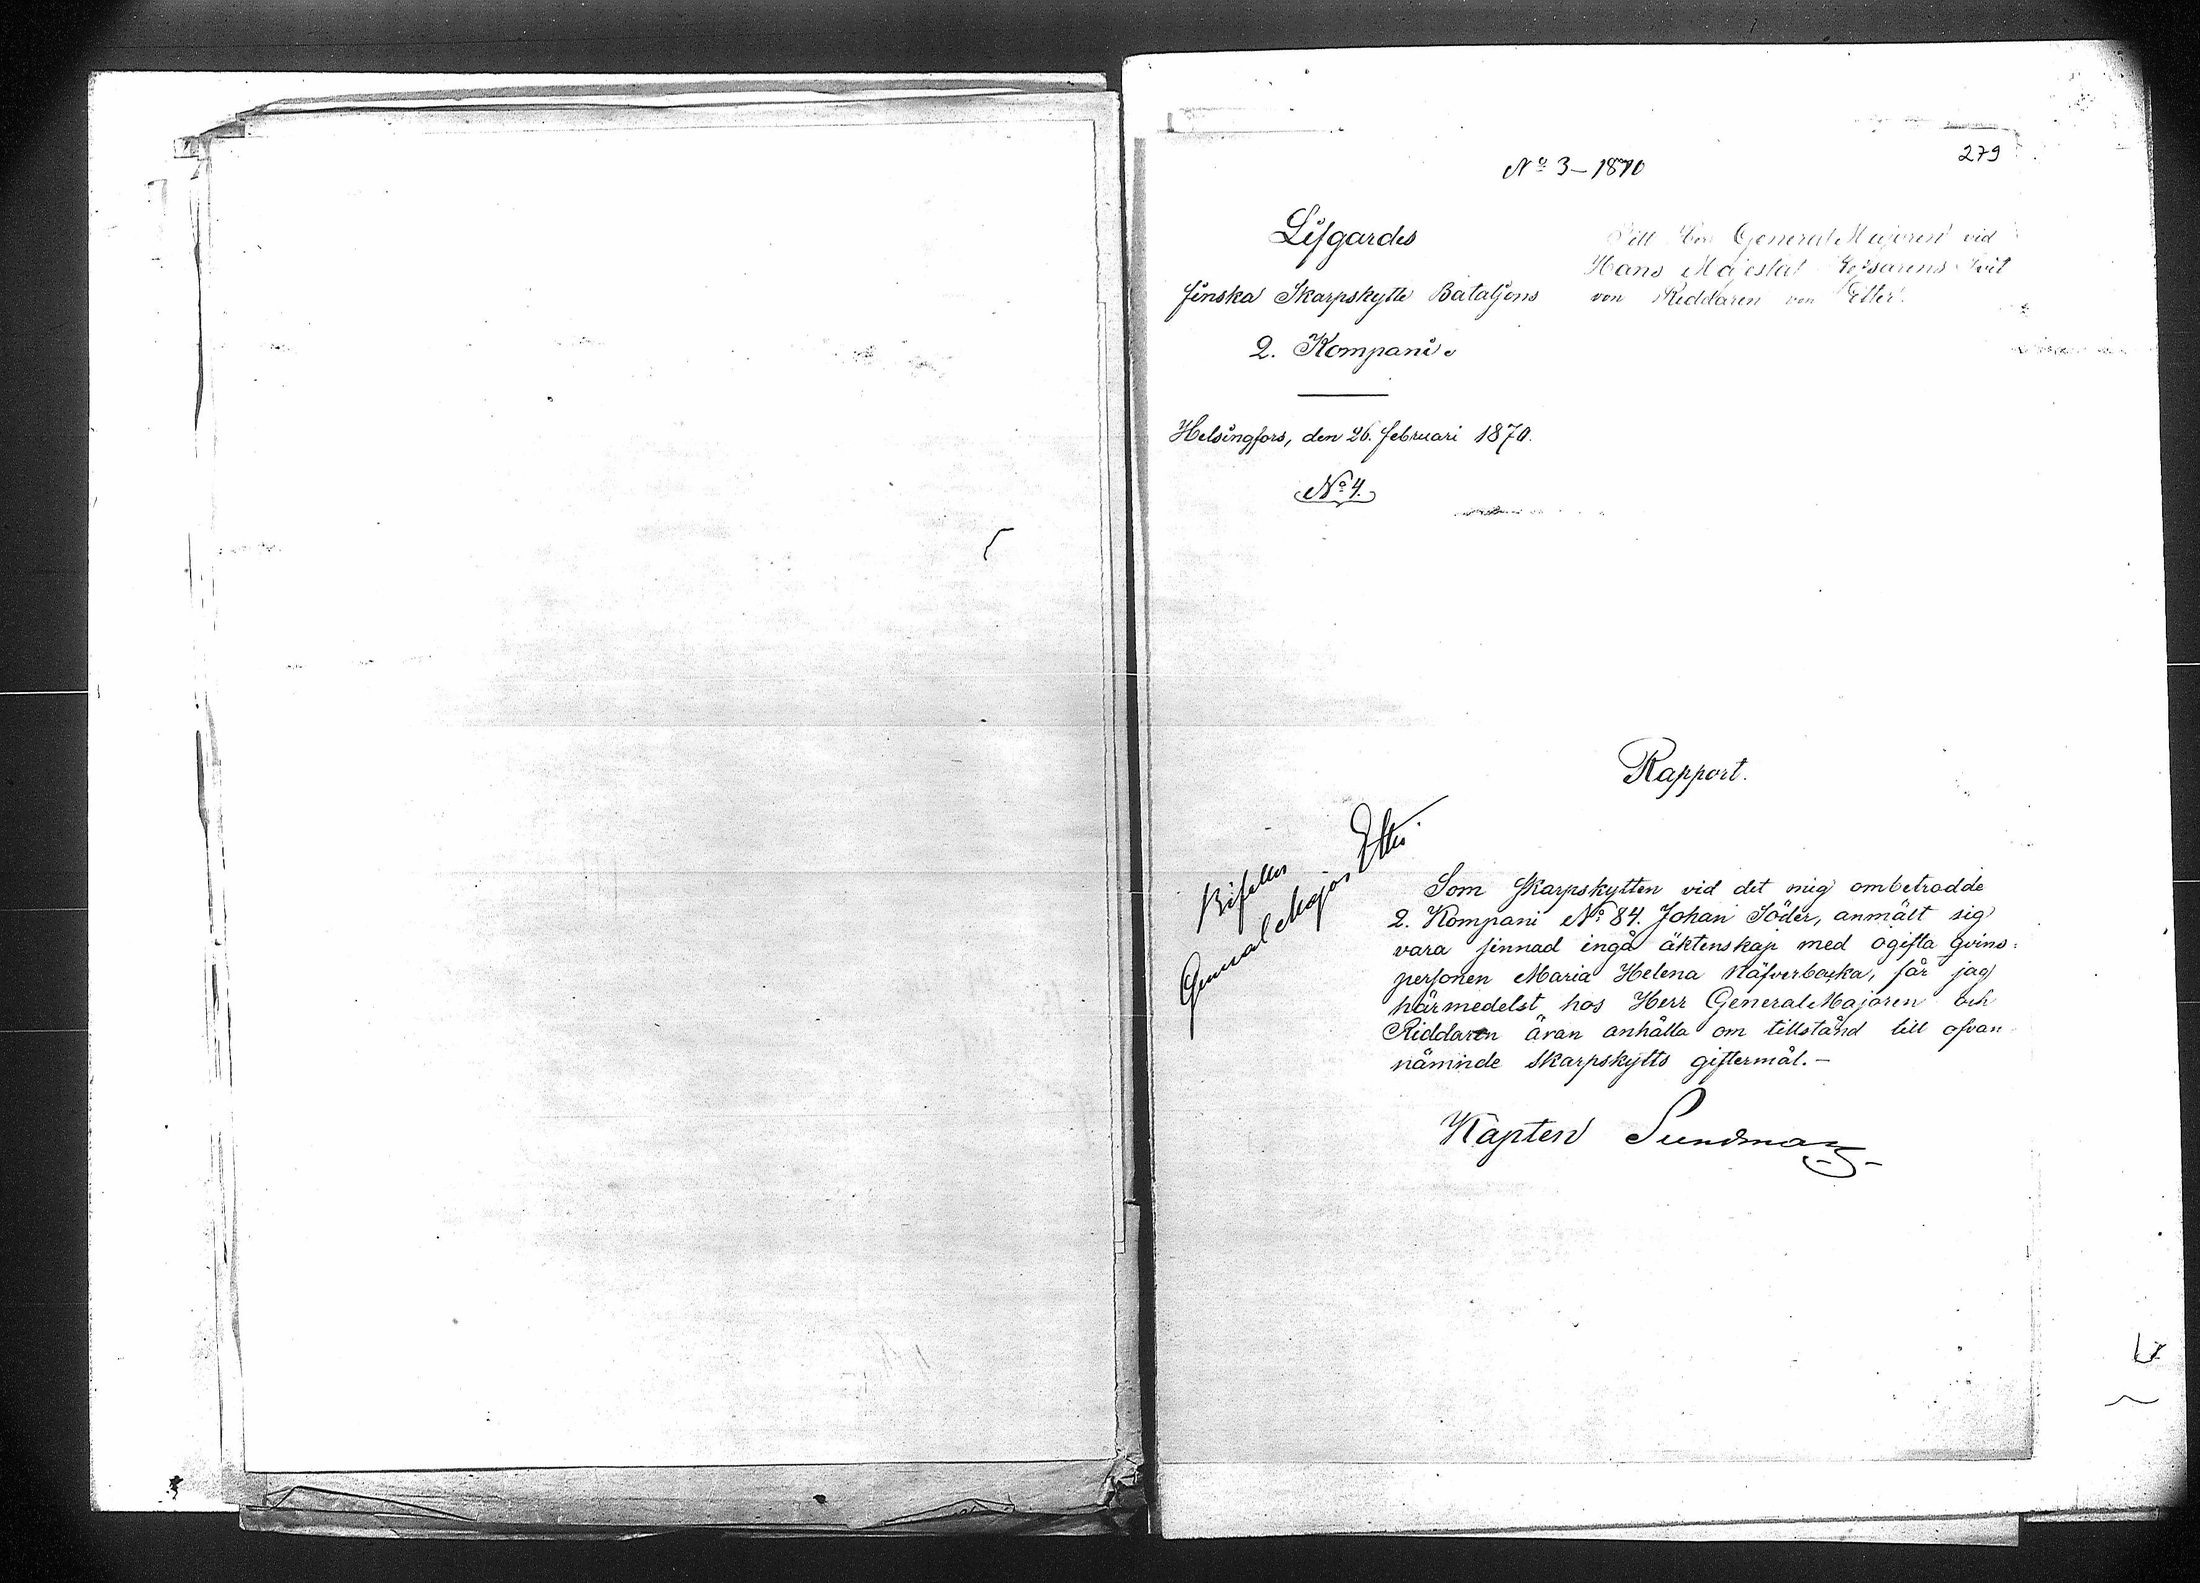 Nº 3 – 1870
279
Lifgardes
finska Skarpskytte Bataljons
2. Kompani.
Helsingfors, den 26. februari 1870.
Nº 4.
Till Herr GeneralMajoren vid
Hans Majestät Kejsarens Svit
von Riddaren von Etter.
Rapport.
Bifalles
GeneralMajor Etter
Som Skarpskytten vid det mig ombetrodde
2. Kompani Nº 84. Johan Söder, anmält sig
vara sinnad ingå äktenskap med ogifta qvins-
personen Maria Helena Näfverbacka, får jag
härmedelst hos Herr GeneralMajoren och
Riddaren äran anhålla om tillstånd till ofvan
nämnde Skarpskytts giftermål. –
Kapten Sundman